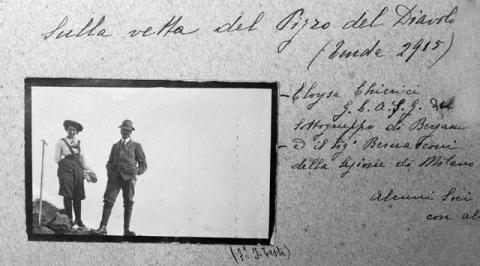 Sulla vetta del Pizzo del Diavolo
(Tenda 2915)
- Eloysa Chierici
G.L.A.S.G. del
Sottogruppo di Bergamo
- ed il Sig. Bernasconi
della Sezione di Milano
Alcuni Soci
con al